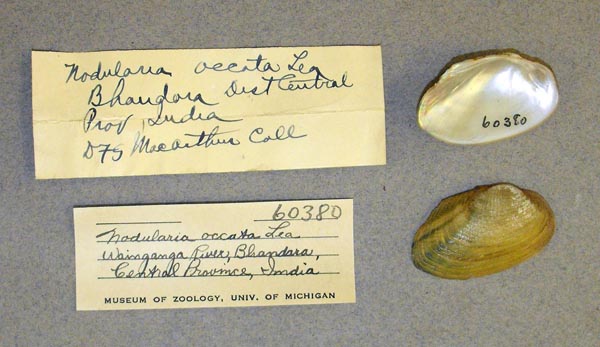 Nodularia occata Lea
Bhandara Dist Central
Prov, India
MacArthur Coll
60380
60380
Nodularia occata Lea
Wainganga River, Bhandara,
Central Province, India
MUSEUM OF ZOOLOGY, UNIV. OF MICHIGAN